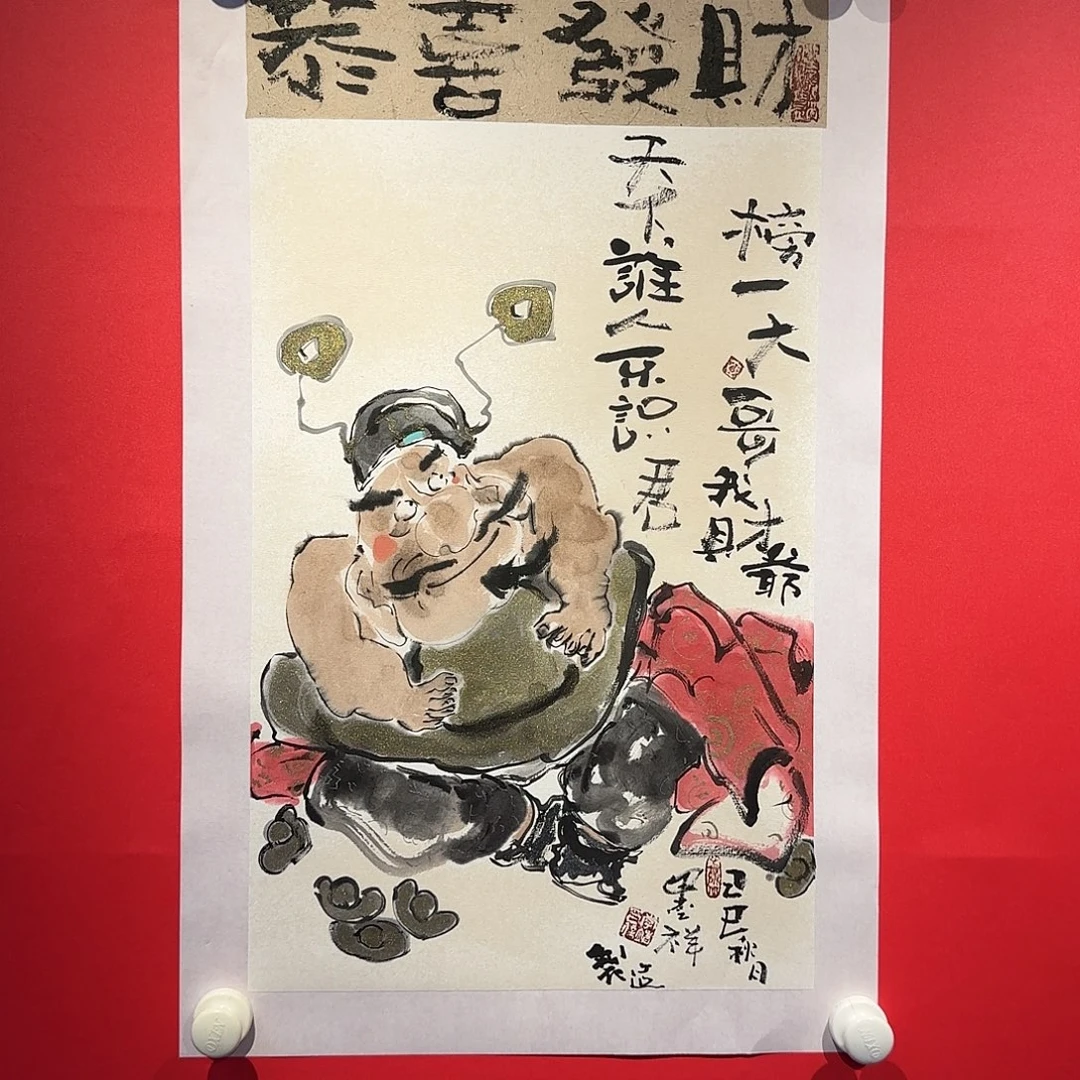 恭喜發財
榜一大哥我財爺
天下誰人不識君
乙巳秋月
墨祥
製造